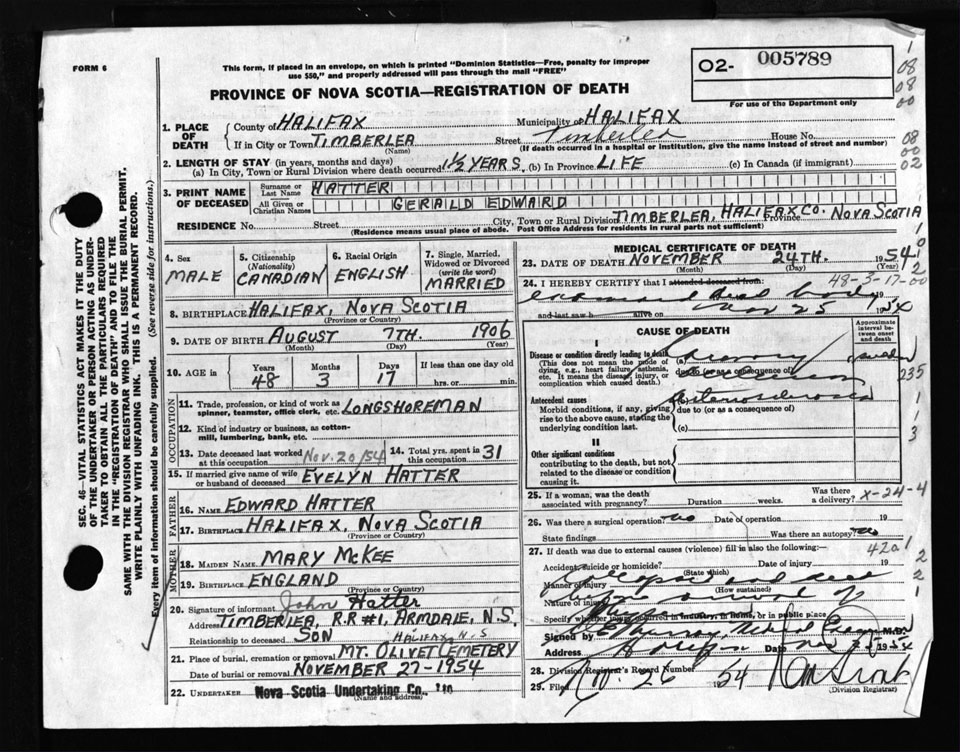 FORM 6
This form, if placed in an envelope, on which is printed "Dominion Statistics—Free, penalty for improper
use $50," and properly addressed will pass through the mail "FREE"
PROVINCE OF NOVA SCOTIA—REGISTRATION OF DEATH
O2- 005789
For use of the Department only
1. PLACE OF DEATH
County of HALIFAX Municipality of HALIFAX
If in City or Town TIMBERLEA Street Timberlea House No.
(Name) (If death occurred in a hospital or institution, give the name instead of street and number)
2. LENGTH OF STAY (in years, months and days)
(a) In City, Town or Rural Division where death occurred 1½ YEARS (b) In Province LIFE (c) In Canada (if immigrant)
3. PRINT NAME OF DECEASED
Surname or Last Name HATTER
All Given or Christian Names GERALD EDWARD
RESIDENCE No. Street City, Town or Rural Division TIMBERLEA, HALIFAX CO. Province NOVA SCOTIA
(Residence means usual place of abode. Post Office Address for residents in rural parts not sufficient)
4. Sex MALE
5. Citizenship (Nationality) CANADIAN
6. Racial Origin ENGLISH
7. Single, Married, Widowed or Divorced (write the word) MARRIED
8. BIRTHPLACE HALIFAX, NOVA SCOTIA
(Province or Country)
9. DATE OF BIRTH AUGUST 7TH. 1906
(Month) (Day) (Year)
10. AGE in Years Months Days If less than one day
48 3 17 hrs. or min.
OCCUPATION
11. Trade, profession, or kind of work as
spinner, teamster, office clerk, etc. LONGSHOREMAN
12. Kind of industry or business, as cotton-
mill, lumbering, bank, etc.
13. Date deceased last worked at this occupation Nov. 20/54
14. Total yrs. spent in this occupation 31
15. If married give name of wife or husband of deceased EVELYN HATTER
FATHER
16. NAME EDWARD HATTER
17. BIRTHPLACE HALIFAX, NOVA SCOTIA
MOTHER
18. MAIDEN NAME MARY McKEE
19. BIRTHPLACE ENGLAND
(Province or Country)
20. Signature of informant John Hatter
Address TIMBERLEA, R.R #1, ARMDALE, N.S,
Relationship to deceased SON HALIFAX N.S
21. Place of burial, cremation or removal MT. OLIVET CEMETERY
Date of burial or removal NOVEMBER 27-1954
22. UNDERTAKER Nova Scotia Undertaking Co., Ltd
MEDICAL CERTIFICATE OF DEATH
23. DATE OF DEATH NOVEMBER 24TH. 1954
(Month) (Day) (Year)
48-3-17-00
24. I HEREBY CERTIFY that I attended deceased from:
examined dead body
and last saw h alive on Nov 25 1954
CAUSE OF DEATH
Approximate interval between onset and death
I
Disease or condition directly leading to death (a) Coronary
(This does not mean the mode of dying, e.g., heart failure, asthenia, etc. It means the disease, injury, or complication which caused death.)
due to (or as a consequence of)
Antecedent causes
Morbid conditions, if any, giving rise to the above cause, stating the underlying condition last.
due to (or as a consequence of)
(c)
II
Other significant conditions
contributing to the death, but not related to the disease or condition causing it.
25. If a woman, was the death associated with pregnancy? Duration weeks. Was there a delivery? X-24-4
26. Was there a surgical operation? no Date of operation 19
State findings Was there an autopsy? no
27. If death was due to external causes (violence) fill in also the following:— 420.1
Accident, suicide or homicide? Date of injury 19
(State which)
Manner of injury
(How sustained)
Nature of injury
Specify whether injury occurred in industry, in home, or in public place
Signed by M.D.
Address Halifax Date
28. Division Registrar's Record Number
29. Filed 26 1954
(Division Registrar)
SEC. 46—VITAL STATISTICS ACT MAKES IT THE DUTY
OF THE UNDERTAKER OR PERSON ACTING AS UNDER-
TAKER TO OBTAIN ALL THE PARTICULARS REQUIRED
IN THE "REGISTRATION OF DEATH" AND TO FILE THE
SAME WITH THE DIVISION REGISTRAR WHO SHALL ISSUE THE BURIAL PERMIT.
WRITE PLAINLY WITH UNFADING INK. THIS IS A PERMANENT RECORD.
Every item of information should be carefully supplied. (See reverse side for instructions.)